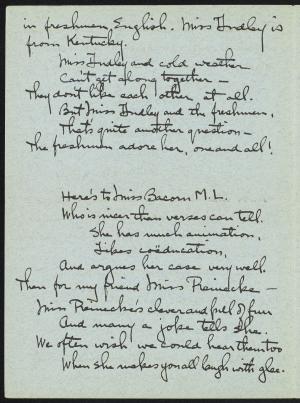 in freshman English. Miss Findley is
from Kentucky.
Miss Findley and cold weather
Can't get along together —
They don't like each other at all.
But Miss Findley and the freshmen,
That's quite another question —
The freshmen adore her, one and all!
Here's to Miss Bacorn M.L.
Who is nicer than verses can tell.
She has much animation,
Likes coëducation,
And argues her case very well.
Then for my friend Miss Reinecke —
Miss Reinecke's clever and full of fun
And many a joke tells she.
We often wish we could hear them too
When she makes you all laugh with glee.